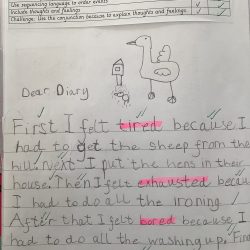 Use sequencing language to order events
Include thoughts and feelings
Challenge: Use the conjunction because to explain thoughts and feelings
Dear Diary
First I felt tired because I
had to get the sheep from the
hill. Next I put the hens in their
house. Then I felt exhausted becau
I had to do all the ironing.
After that I felt bored because I
had to do all the washing up.